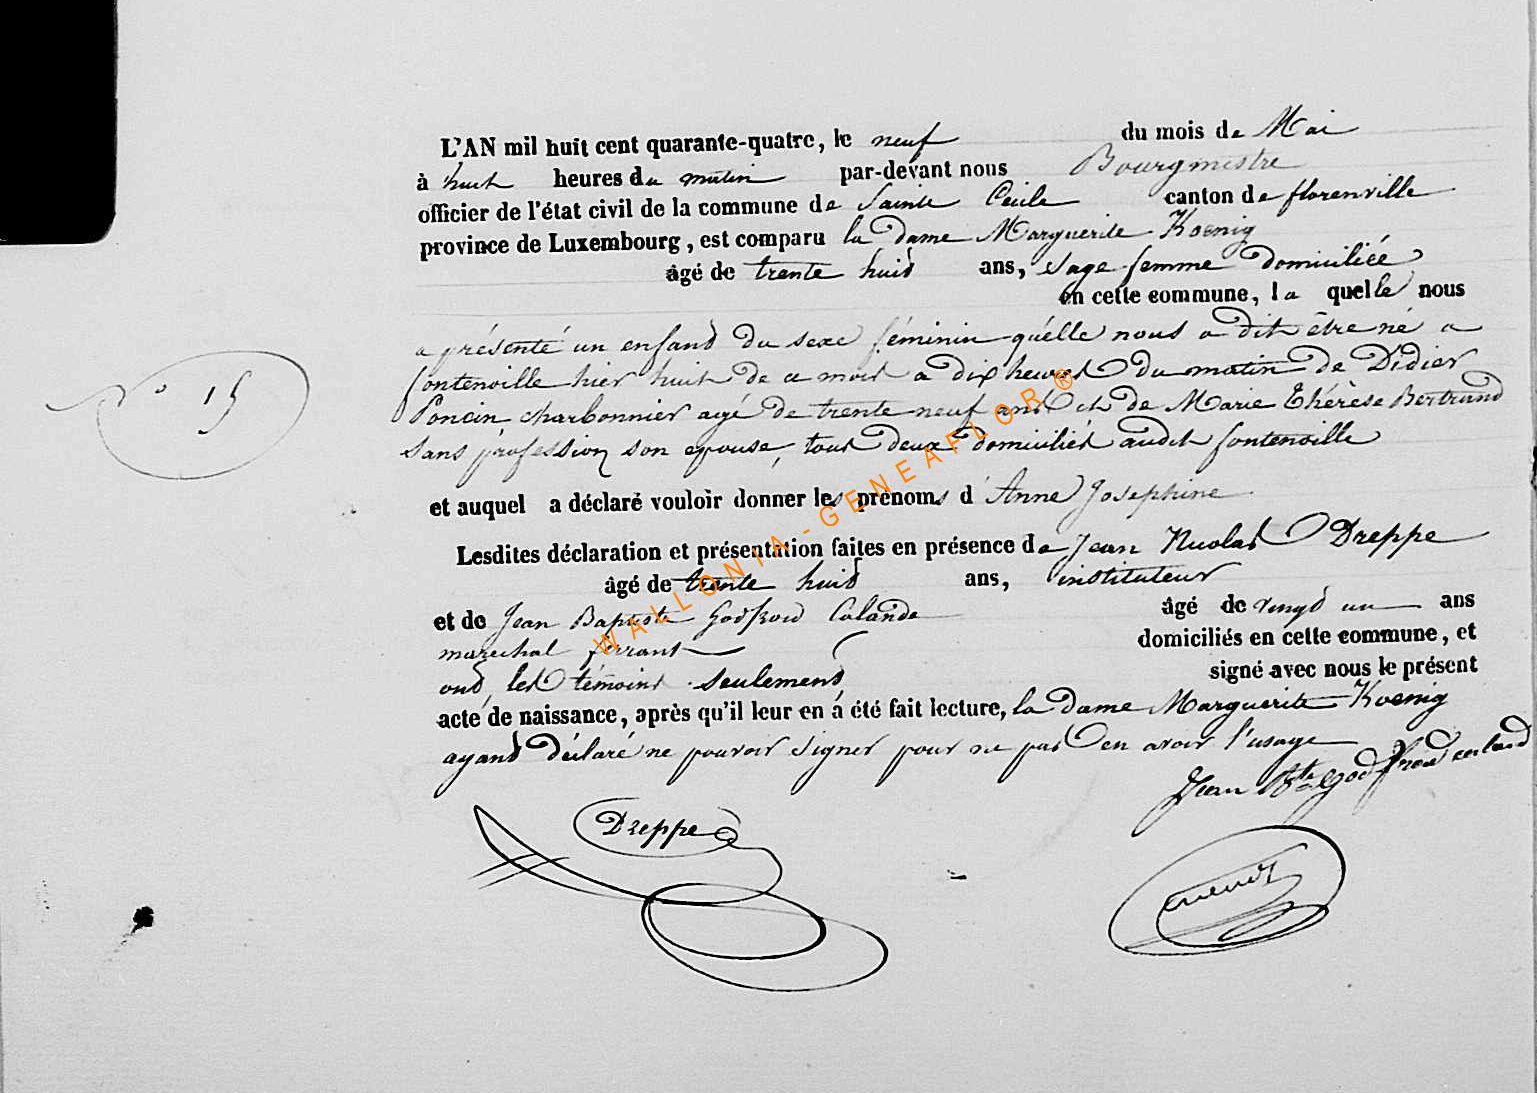 L'AN mil huit cent quarante-quatre, le neuf du mois de Mai
à huit heures du matin par-devant nous Bourgmestre
officier de l'état civil de la commune de Sainte Cécile canton de florenville
province de Luxembourg, est comparu la dame Marguerite Koenig
âgé de trente huid ans, sage femme domiciliée
en cette commune, la quelle nous
a présenté un enfand du sexe féminin qu'elle nous a dit être né a
fontenoille hier huit de ce mois a dix heures du matin de Didier
Poncin charbonnier agé de trente neuf ans et de Marie Thérèse Bertrand
sans profession son epouse, tous deux domiciliés audit fontenoille
et auquel a déclaré vouloir donner les prénoms d'Anne Josephine
Lesdites déclaration et présentation faites en présence de Jean Nicolas Dreppe
âgé de trente huid ans, instituteur
et de Jean Baptiste Godfroid Calande âgé de vingd un ans
marechal ferrant domiciliés en cette commune, et
ond les témoins seulemend signé avec nous le présent
acte de naissance, après qu'il leur en a été fait lecture, la dame Marguerite Koenig
ayand déclaré ne pouvoir signer pour ne pas en avoir l'usage
Jean Bte Godfroid
Dreppe
n° 15
WALLONIA-GENEAFLOR®